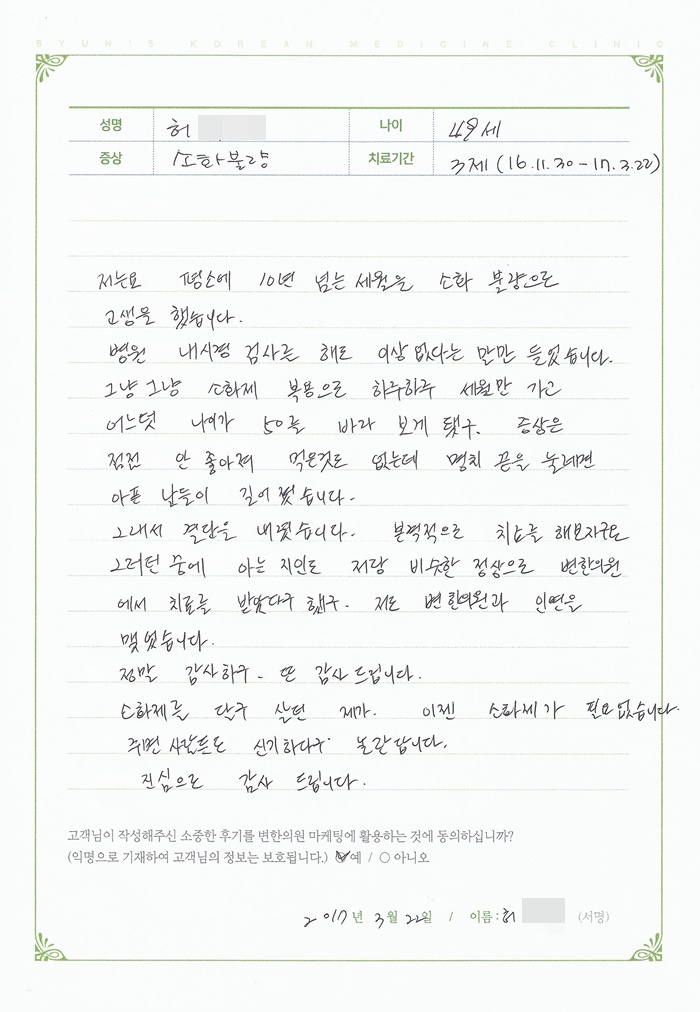 BYUN'S KOREAN MEDICINE CLINIC
성명 허 나이 49세
증상 소화불량 치료기간 3제 (16.11.30 - 17.3.22)
저는요 평소에 10년 넘는 세월을 소화 불량으로
고생을 했습니다.
병원 내시경 검사를 해도 이상 없다는 말만 들었습니다.
그냥 그냥 소화제 복용으로 하루하루 세월만 가고
어느덧 나이가 50을 바라 보게 됐구. 증상은
점점 안 좋아져 먹은것도 없는데 명치 끝을 눌레면
아픈 날들이 길어 졌습니다.
그래서 결단을 내렸습니다. 본격적으로 치료를 해보자구요
그러던 중에 아는 지인도 저랑 비슷한 증상으로 변한의원
에서 치료를 받았다구 했구. 저도 변한의원과 인연을
맺었습니다.
정말 감사하구. 또 감사 드립니다.
소화제를 달구 살던 제가. 이젠 소화제가 필요없습니다.
주변 사람들도 신기하다구 놀란답니다.
진심으로 감사 드립니다.
고객님이 작성해주신 소중한 후기를 변한의원 마케팅에 활용하는 것에 동의하십니까?
(익명으로 기재하여 고객님의 정보는 보호됩니다.) 예 / 아니오
2017년 3월 22일 / 이름 : 허 (서명)